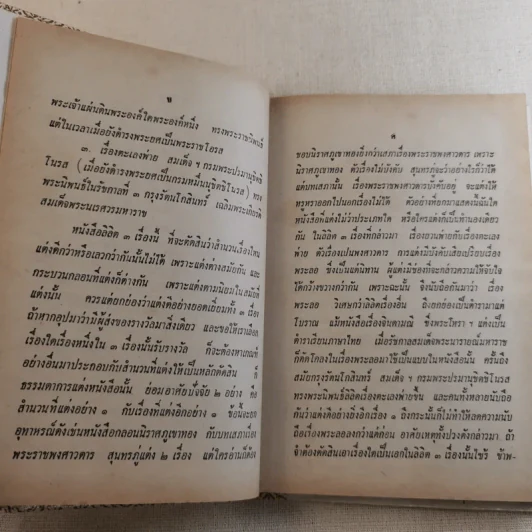 ข
พระเจ้าแผ่นดินพระองค์ใดพระองค์หนึ่ง ทรงพระราชนิพนธ์
แต่ในเวลาเมื่อยังดำรงพระยศเป็นพระราชโอรส
๓. เรื่องตะเลงพ่าย สมเด็จ ฯ กรมพระปรมานุชิตชิ
โนรส (เมื่อยังดำรงพระยศเป็นกรมหมื่นนุชิตชิโนรส) ทรง
พระนิพนธ์ในรัชกาลที่ ๓ กรุงรัตนโกสินทร์ เฉลิมพระเกียรติ
สมเด็จพระนเรศวรมหาราช
หนังสือลิลิต ๓ เรื่องนี้ ที่จะตัดสินว่าสำนวนเรื่องไหน
แต่งดีกว่าหรือเลวกว่ากันนั้นไม่ได้ เพราะแต่งต่างสมัยกัน และ
กระบวนกลอนที่แต่งก็ต่างกัน เพราะแต่งตามนิยมในสมัยที่
แต่งนั้น ควรแต่ยกย่องว่าแต่งดีอย่างยอดเยี่ยมทั้ง ๓ เรื่อง
ถ้าหากอุปมาว่ามีผู้ส่งของรางวัลมาสิ่งเดียว และขอให้เราเลือก
เรื่องใดเรื่องหนึ่งใน ๓ เรื่องนั้นรับรางวัล ก็จะต้องหาเกณฑ์
อย่างอื่นมาประกอบกับสำนวนที่แต่งให้เป็นหลักตัดสิน ก็
ธรรมดาการแต่งหนังสือนั้น ย่อมอาศัยปัจจัย ๒ อย่าง คือ
สำนวนที่แต่งอย่าง ๑ กับเรื่องที่แต่งอีกอย่าง ๑ ข้อนี้จะยก
อุทาหรณ์ดังเช่นหนังสือกลอนนิราศภูเขาทอง กับบทเสภาเรื่อง
พระราชพงศาวดาร สุนทรภู่แต่ง ๒ เรื่อง แต่ใครอ่านก็ต้อง
ค
ชอบนิราศภูเขาทองยิ่งกว่าเสภาเรื่องพระราชพงศาวดาร เพราะ
นิราศภูเขาทอง ตัวเรื่องไม่บังคับ สุนทรภู่จะว่าอย่างไรก็ว่าได้
แต่บทเสภานั้น เรื่องพระราชพงศาวดารบังคับอยู่ จะแต่งให้
หรูหราออกไปนอกเรื่องไม่ได้ ตัวอย่างที่ยกมาแสดงนี้ฉันใด
หนังสือที่แต่งไม่ว่าประเภทใด หรือใครแต่งก็เป็นทำนองเดียว
กัน ในลิลิต ๓ เรื่องที่กล่าวมา เรื่องยวนพ่ายกับเรื่องตะเลง
พ่าย ตัวเรื่องเป็นพงศาวดาร การแต่งมีบังคับเสียเปรียบเรื่อง
พระลอ ซึ่งเป็นแต่นิทาน ผู้แต่งมีช่องที่จะกล่าวความให้จับใจ
ได้กว้างขวางกว่ากัน เพราะฉะนั้น จึงนับถือกันมาว่า เรื่อง
พระลอ วิเศษกว่าลิลิตเรื่องอื่น ถึงยกย่องเป็นตำรามาแต่
โบราณ แม้หนังสือเรื่องจินดามณี ซึ่งพระโหรา ฯ แต่งเป็น
ตำราเรียนภาษาไทย เมื่อรัชกาลสมเด็จพระนารายณ์มหาราช
ก็คัดโคลงในเรื่องพระลอมาใช้เป็นแบบในหนังสือนั้น ครั้นถึง
สมัยกรุงรัตนโกสินทร์ สมเด็จ ฯ กรมพระปรมานุชิตชิโนรส
ทรงพระนิพนธ์ลิลิตเรื่องตะเลงพ่ายขึ้น และคนทั้งหลายนับถือ
กันว่าแต่งดีอย่างยิ่งอีกเรื่อง ๑ ถึงกระนั้นก็ไม่ทำให้ลดความนับ
ถือเรื่องพระลอลงกว่าแต่ก่อน อาศัยเหตุทั้งปวงดังกล่าวมา ถ้า
จำต้องตัดสินเอาเรื่องใดเป็นเอกในลิลิต ๓ เรื่องนั้นไซร้ ข้าพ-